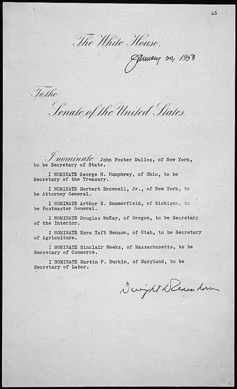 46
The White House,
January 20, 1953
To the
Senate of the United States.
I nominate John Foster Dulles, of New York,
to be Secretary of State.
I NOMINATE George M. Humphrey, of Ohio, to be
Secretary of the Treasury.
I NOMINATE Herbert Brownell, Jr., of New York, to
be Attorney General.
I NOMINATE Arthur E. Summerfield, of Michigan, to
be Postmaster General.
I NOMINATE Douglas McKay, of Oregon, to be Secretary
of the Interior.
I NOMINATE Ezra Taft Benson, of Utah, to be Secretary
of Agriculture.
I NOMINATE Sinclair Weeks, of Massachusetts, to be
Secretary of Commerce.
I NOMINATE Martin P. Durkin, of Maryland, to be
Secretary of Labor.
Dwight D Eisenhower